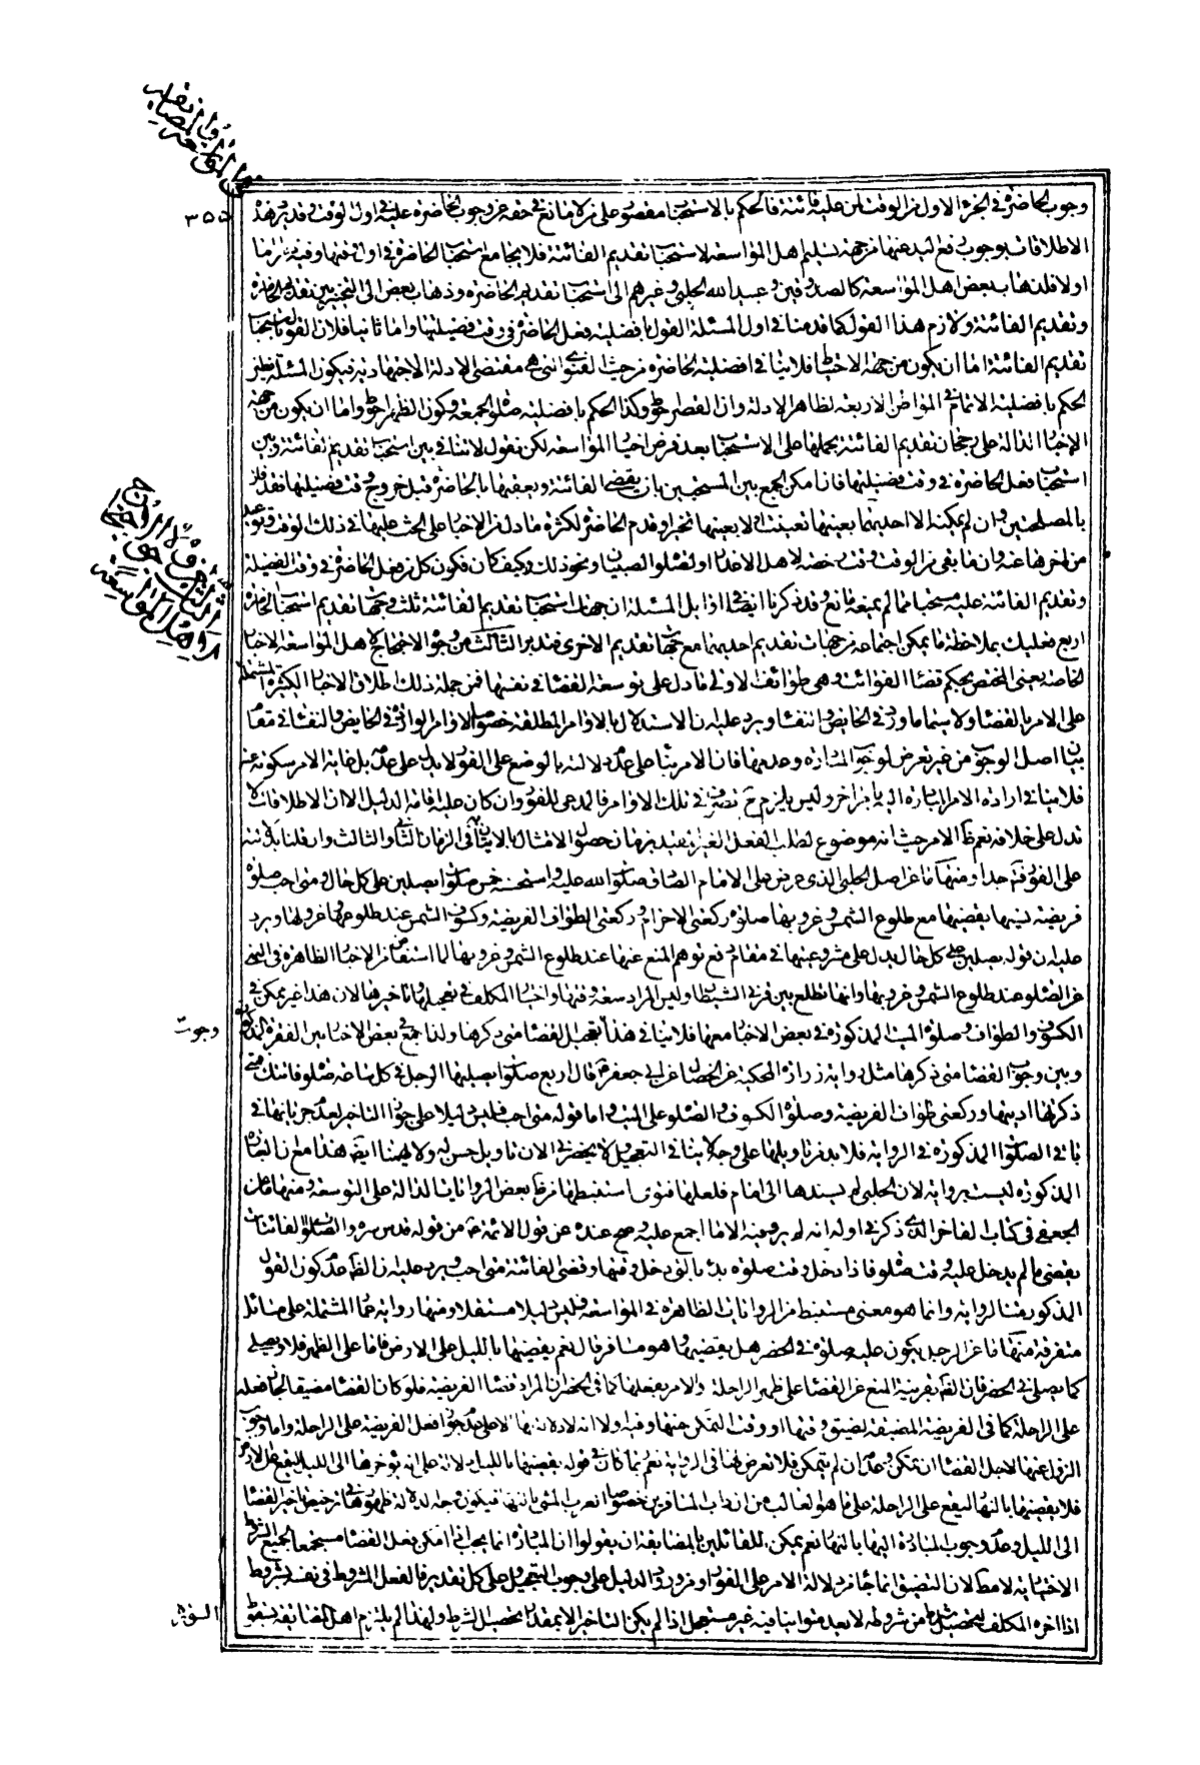 في المواسعة والمضايقة
٣٥٥
وجوب الحاضرة في الجزء الاول من الوقت لمن عليه فائتة فالحكم بالاستحباب مقصور على من لا مانع في حقه عن وجوب الحاضرة عليه في اول الوقت فتدبر هذه
الاطلاقات بوجوب عنها من جهة تسليم اهل المواسعة لاستحباب تقديم الفائتة فلا يجامع استحباب الحاضرة في اول وقتها وفيه ان
اولا فلذهاب بعض اهل المواسعة كالصدوقين وعبيد الله الحلبي وغيرهم الى استحباب تقديم الحاضرة وذهاب بعض الى التخيير بين تقديم الحاضرة
وتقديم الفائتة ولازم هذا القول كما قدمنا في اول المسئلة القول بافضلية فعل الحاضرة في وقت فضيلتها واما ثانيا فلان القول باستحباب
تقديم الفائتة اما ان يكون من جهة الاحتياط فلا ينافي افضلية الحاضرة من حيث الفتوى التي هي مقتضى الادلة الاجتهادية فيكون المسئلة نظير
الحكم بافضلية الاتمام في المواطن الاربعة لظاهر الادلة وان القصر احوط وكذا الحكم بافضلية صلوة الجمعة وكون الظهر احوط واما ان يكون من جهة
الاخبار الدالة على رجحان تقديم الفائتة بحملها على الاستحباب بعد فرض اخبار المواسعة لكن نقول لا تنافي بين استحباب تقديم الفائتة وبين
استحباب فعل الحاضرة في وقت فضيلتها فان امكن الجمع بين المستحبين بان يقضي الفائتة ويعقبها بالحاضرة قبل خروج وقت فضيلتها فقد فاز
بالمصلحتين وان لم يمكنه الا احديهما بعينها تعينت او لا بعينها تخير او قدم الحاضرة لكثرة ما دل من الاخبار على الحث عليها في ذلك الوقت وتوعيد
من اخرها عنه وان ما بقي من الوقت وقت رخصة لاهل الاعذار او لصلوة الصبيان ونحو ذلك وكيف كان فكون كل من فعل الحاضرة في وقت الفضيلة
وتقديم الفائتة عليه مستحبا مما لم يمنعه مانع وقد ذكرنا ايضا في اوائل المسئلة ان جهات استحباب تقديم الفائتة ثلث وجهات تقديم استحباب الحاضرة
اربع فعليك بملاحظة ما يمكن اجتماعه من جهات تقديم احديهما مع جهات تقديم الاخرى فتدبر الثالث من وجوه الاحتجاج لاهل المواسعة الاخبار
الخاصة يعني المختص بحكم قضاء الفوائت وهي طوائف الاولى ما دل على توسعة القضاء في نفسها فمن جملة ذلك اطلاق الاخبار الكثيرة المشتملة
على الامر بالقضاء ولا سيما ما ورد في الحائض والنفساء ويرد عليه ان الاستدلال بالاوامر المطلقة خصوصا الاوامر الواردة في الحائض والنفساء في مقام
بيان اصل الوجوب من غير تعرض لوجوب المبادرة وعدمها فان الامر بناء على عدم دلالته بالوضع على الفور لا يدل على عدمه بل غاية الامر سكوته عنه
فلا ينافي ارادة الامر المبادرة اليه
تدل على خلافه نعم ظاهر الامر حيث انه موضوع لطلب الفعل الغير المقيد بزمان حصول الامتثال بالاتيان به في الزمان الثاني والثالث
ومنها ما عن اصل الحلبي الذي عرض على الامام الصادق صلوات الله عليه واستحسنه خمس صلوات يصلين على كل حال ومتى احب صلوة
فريضة نسيها يقضيها مع طلوع الشمس وغروبها وصلوة ركعتي الاحرام وركعتي الطواف الفريضة وكسوف الشمس عند طلوعها وغروبها ويرد
عليه ان قوله يصلين على كل حال يدل على مشروعيتها في مقام دفع توهم المنع عنها عند طلوع الشمس وغروبها لما استفاض من الاخبار الظاهرة في النهي
عن الصلوة عند طلوع الشمس وغروبها وانها تطلع بين قرني الشيطان وليس المراد سعة وقتها واختيار المكلف في تعجيلها وتاخيرها لان هذا غير ممكن في
الكسوف والطواف وصلوة الميت المذكورة في بعض الاخبار معها فلا ينافي هذا تعجيل القضاء متى ذكرها ولذا جمع في بعض الاخبار بين الفقرة المذكورة
وجوب
وبين وجوب القضاء متى ذكرها مثل رواية زرارة المحكية عن الخصال عن ابي جعفر قال اربع صلوات يصليها الرجل في كل ساعة صلوة فاتتك متى
ذكرتها اديتها وركعتي طواف الفريضة وصلوة الكسوف والصلوة على الميت واما قوله متى احب فليس دليلا على جواز التاخير لعدم جريانها في
باقي الصلوات المذكورة في الرواية فلا بد من تاويلها على وجه لا ينافي التعجيل لا يحضرني الان تاويل حسن له ولا يهمنا ايضا هذا مع ان العبارة
المذكورة ليست برواية لان الحلبي لم يسندها الى امام فلعلها فتوى استنبطها من ظاهر بعض الروايات الدالة على التوسعة ومنها ما عن
الجعفي في كتاب الفاخر الذي ذكر في اوله انه لم يرو فيه الا ما اجمع عليه وصح عنده عن قول الائمة من قوله قدس سره والصلوة الفائتات
يقضى ما لم يدخل عليه وقت صلوة فاذا دخل وقت صلوة بدء بالتي دخل وقتها وقضى الفائتة متى احب ويرد عليه ان الظاهر عدم كون القول
المذكور متنا لرواية وانما هو معنى مستنبط من الروايات الظاهرة في المواسعة فليس دليلا مستقلا ومنها رواية عمار المشتملة على مسائل
متفرقة منها ما عن الرجل يكون عليه صلوة في الحضر هل يقضيها وهو مسافر قال نعم يقضيها بالليل على الارض فاما على الظهر فلا ويصلي
كما يصلي في الحضر فان الظاهر بقرينة المنع عن القضاء على ظهر الراحلة والامر بفعلها كما في الحضر ان المراد قضاء الفريضة فلو كان القضاء مضيقا لجاز فعله
على الراحلة كما في الفريضة المضيقة لضيق وقتها او وقت التمكن منها وفيه اولا انه لا دلالة فيها الا على عدم جواز فعل الفريضة على الراحلة واما وجوب
النزول عنها لاجل القضاء ان تمكن وعدمه ان لم يتمكن فلا تعرض لها في الرواية نعم ربما كان في قوله يقضيها بالليل دلالة على انه يؤخرها الى الليل ليقع على الارض
فلا يقضيها بالنهار ليقع على الراحلة على ما هو الغالب من انه اب المسافرين خصوصا العرب المشي بالنهار فيكون وجه الدلالة ظهورها في ترخيص تاخير القضاء
الى الليل وعدم وجوب المبادرة اليها بالنهار نعم يمكن للقائلين بالمضايقة ان يقولوا ان المبادرة انما يجب اذا امكن فعل القضاء مستجمعا لجميع الشروط
الاختيارية لا مطلقا لان التضيق انما جاء من دلالة الامر على الفور او من ورود الدليل على وجوب التعجيل وعلى كل تقدير فالفعل المشروط في نفسه بشروط
اذا اخره المكلف لتحصيل شرط من شروطه لا يعد متوانيا فيه غير مستعجل اذا لم يكن التاخير الا بمقدار تحصيل الشرط ولهذا لم يلتزم اهل المضايقة بسقوط
السورة